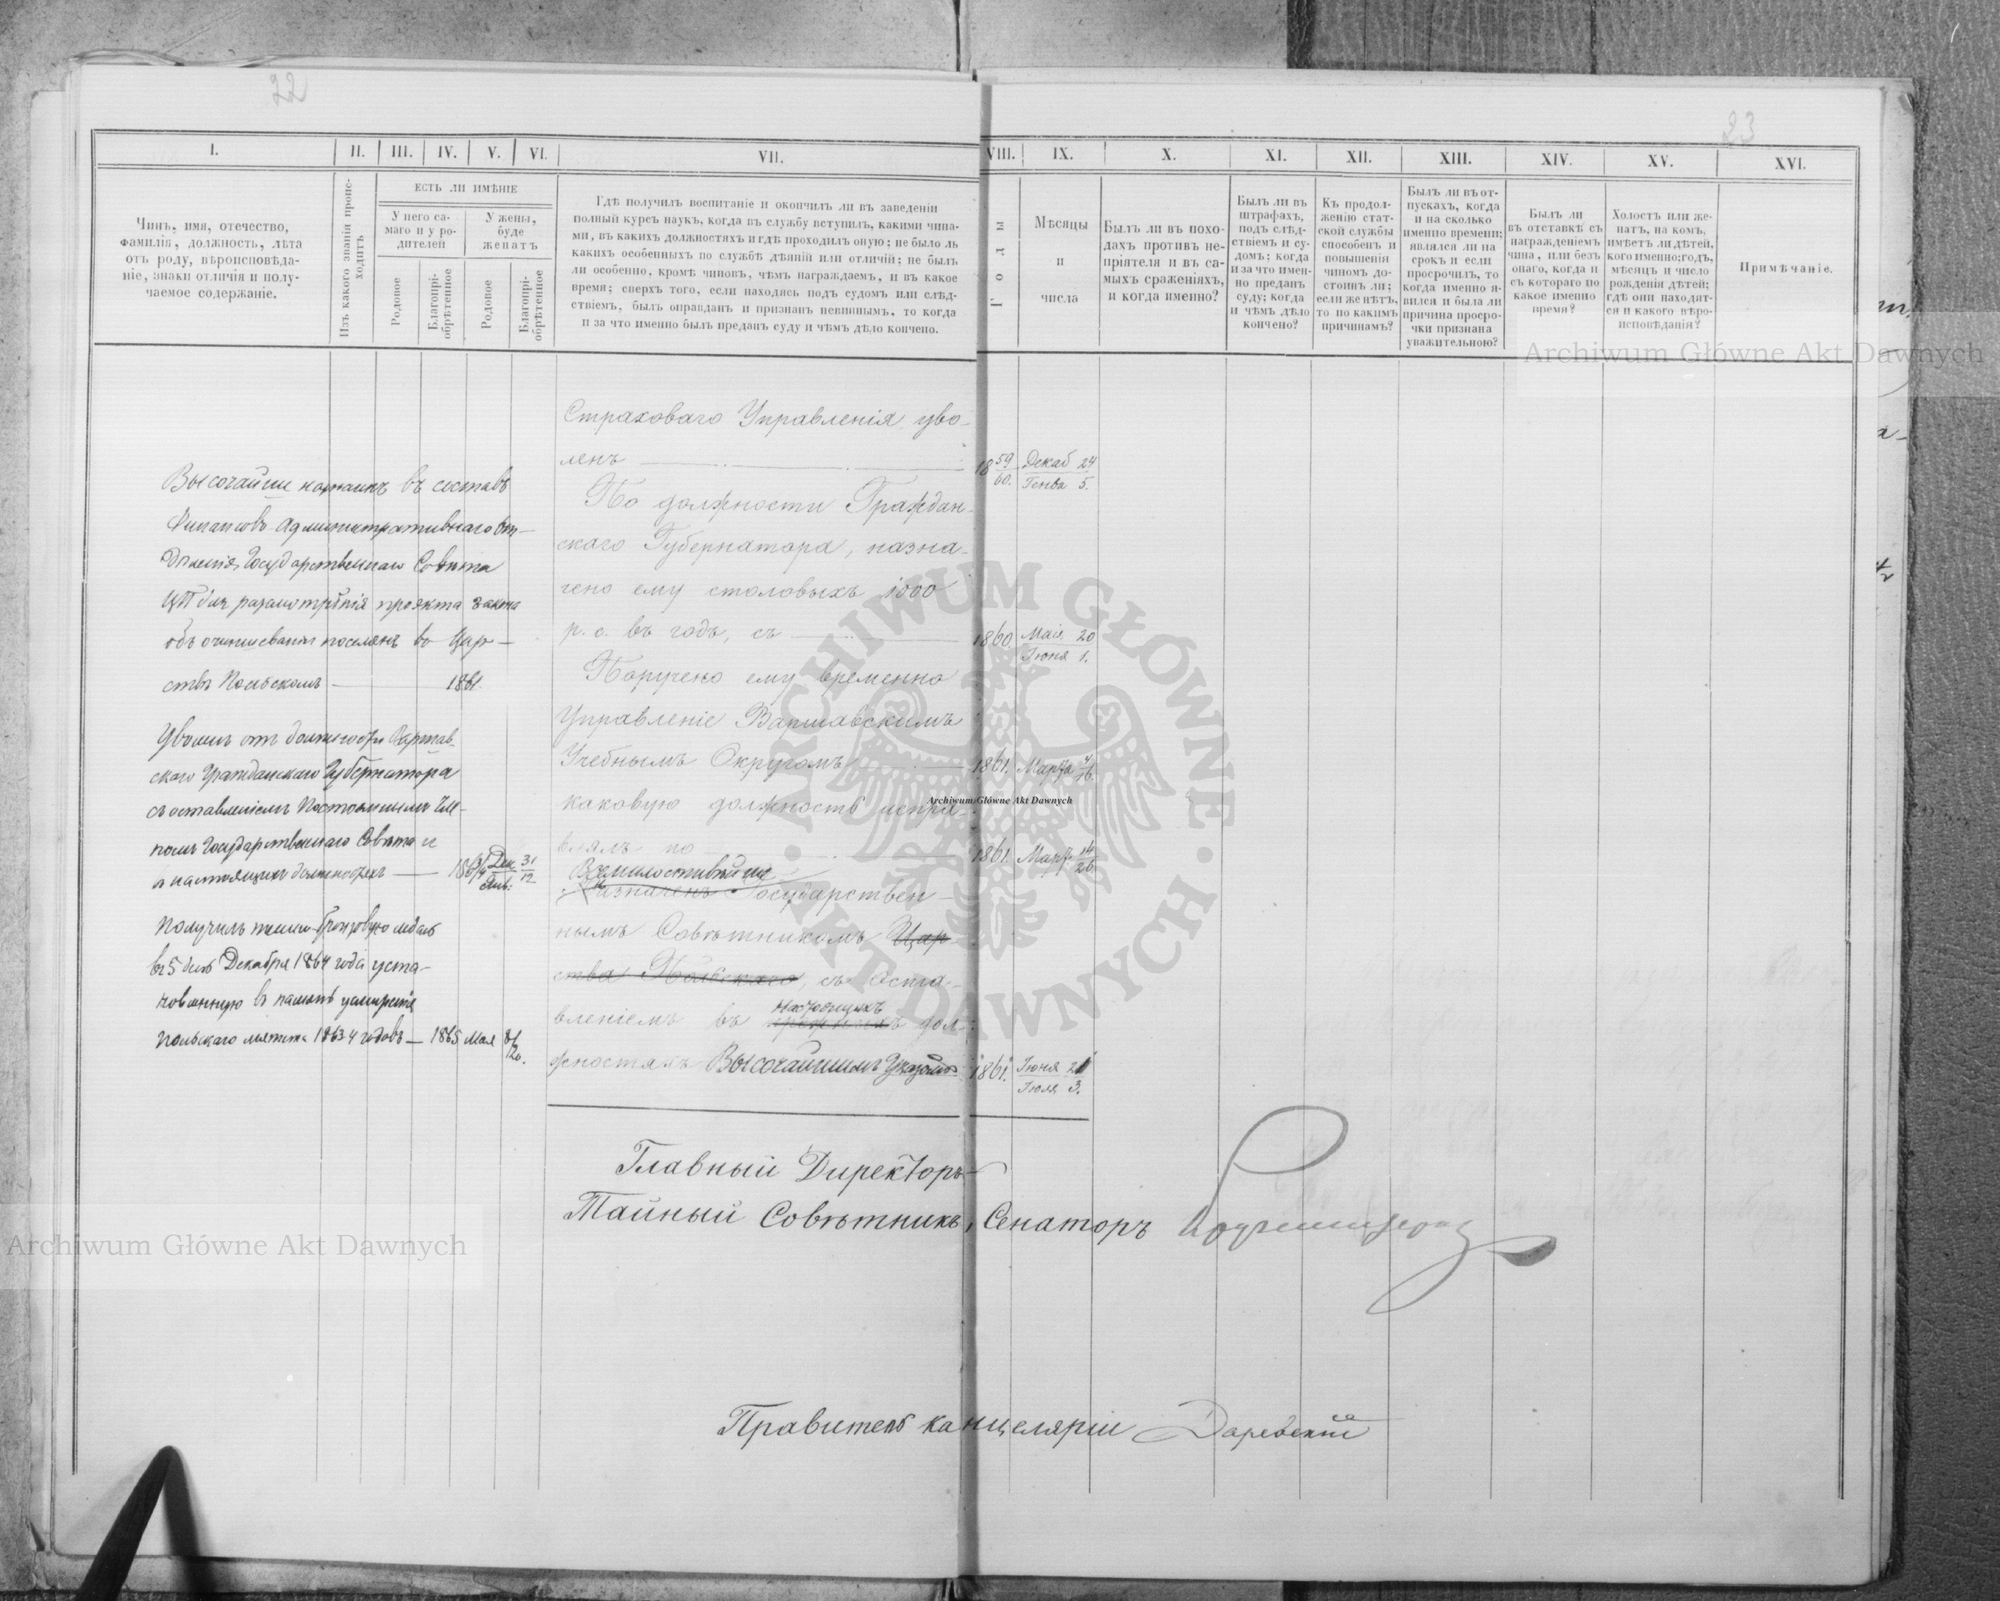 22
23
I.
II.
III.
IV.
V.
VI.
VII.
VIII.
IX.
X.
XI.
XII.
XIII.
XIV.
XV.
XVI.
Чинъ, имя, отечество,
фамилія, должность, лѣта
отъ роду, вѣроисповѣда-
ніе, знаки отличія и полу-
чаемое содержаніе.
Изъ какого званія проис-
ходитъ
ЕСТЬ ЛИ ИМѢНІЕ
У него са-
маго и у ро-
дителей
У жены,
буде
женатъ
Родовое
Благопрі-
обрѣтенное
Родовое
Благопрі-
обрѣтенное
Гдѣ получилъ воспитаніе и окончилъ ли въ заведеніи
полный курсъ наукъ, когда въ службу вступилъ, какими чина-
ми, въ какихъ должностяхъ и гдѣ проходилъ оную; не было ль
какихъ особенныхъ по службѣ дѣяній или отличій; не былъ
ли особенно, кромѣ чиновъ, чѣмъ награждаемъ, и въ какое
время; сверхъ того, если находясь подъ судомъ или слѣд-
ствіемъ, былъ оправданъ и признанъ невиннымъ, то когда
и за что именно былъ преданъ суду и чѣмъ дѣло кончено.
Годы
Мѣсяцы
и
числа
Былъ ли въ похо-
дахъ противъ не-
пріятеля и въ са-
мыхъ сраженіяхъ,
и когда именно?
Былъ ли въ
штрафахъ,
подъ слѣд-
ствіемъ и су-
домъ; когда
и за что имен-
но преданъ
суду; когда
и чѣмъ дѣло
кончено?
Къ продол-
женію стат-
ской службы
способенъ и
повышенія
чиномъ до-
стоинъ ли;
если же нѣтъ,
то по какимъ
причинамъ?
Былъ ли въ от-
пускахъ, когда
и на сколько
именно времени;
являлся ли на
срокъ и если
просрочилъ, то
когда именно я-
вился и была ли
причина просро-
чки признана
уважительною?
Былъ ли
въ отставкѣ съ
награжденіемъ
чина, или безъ
онаго, когда и
съ котораго по
какое именно
время?
Холостъ или же-
натъ, на комъ,
имѣетъ ли дѣтей,
кого именно; годъ,
мѣсяцъ и число
рожденія дѣтей;
гдѣ они находят-
ся и какого вѣро-
исповѣданія?
Примѣчаніе.
Высочайше назначенъ въ составъ
Финансовъ Административнаго От-
дѣленія Государственнаго Совѣта
ЦП для разсмотрѣнія проэкта закона
объ очиншеваніи поселянъ въ Цар-
ствѣ Польскомъ 1861
Уволенъ отъ должности Варшав-
скаго Гражданскаго Губернатора
съ оставленіемъ Постояннымъ Чле-
номъ Государственнаго Совѣта и
въ настоящихъ должностяхъ 1863/4 Дек. 31 Янв. 12
Получилъ темно-бронзовую медаль
въ 5 день Декабря 1864 года уста-
новленную въ память усмиренія
Польскаго мятежа 1863-4 годовъ 1865 Мая
Страховаго Управленія, уво-
ленъ 18 59/60. Декаб 24 Генва 5.
По должности Граждан-
скаго Губернатора, назна-
чено ему столовыхъ 1000
р. с. въ годъ, съ 1860. Маія 20 Іюня 1.
Поручено ему временно
Управленіе Варшавскимъ
Учебнымъ Округомъ 1861. Марта 4/16.
каковую должность испра-
влялъ по 1861. Марта 14/26.
Всемилостивѣйше
Назначенъ Государствен-
нымъ Совѣтникомъ Цар-
ства Польскаго, съ оста-
вленіемъ въ настоящихъ прежнихъ дол-
жностяхъ Высочайшимъ Указомъ 1861. Іюня 21 Іюля 3.
Главный Директоръ
Тайный Совѣтникъ, Сенаторъ
Правитель канцеляріи Даревскій
Archiwum Główne Akt Dawnych
Archiwum Główne Akt Dawnych
Archiwum Główne Akt Dawnych
ARCHIWUM GŁÓWNE AKT DAWNYCH